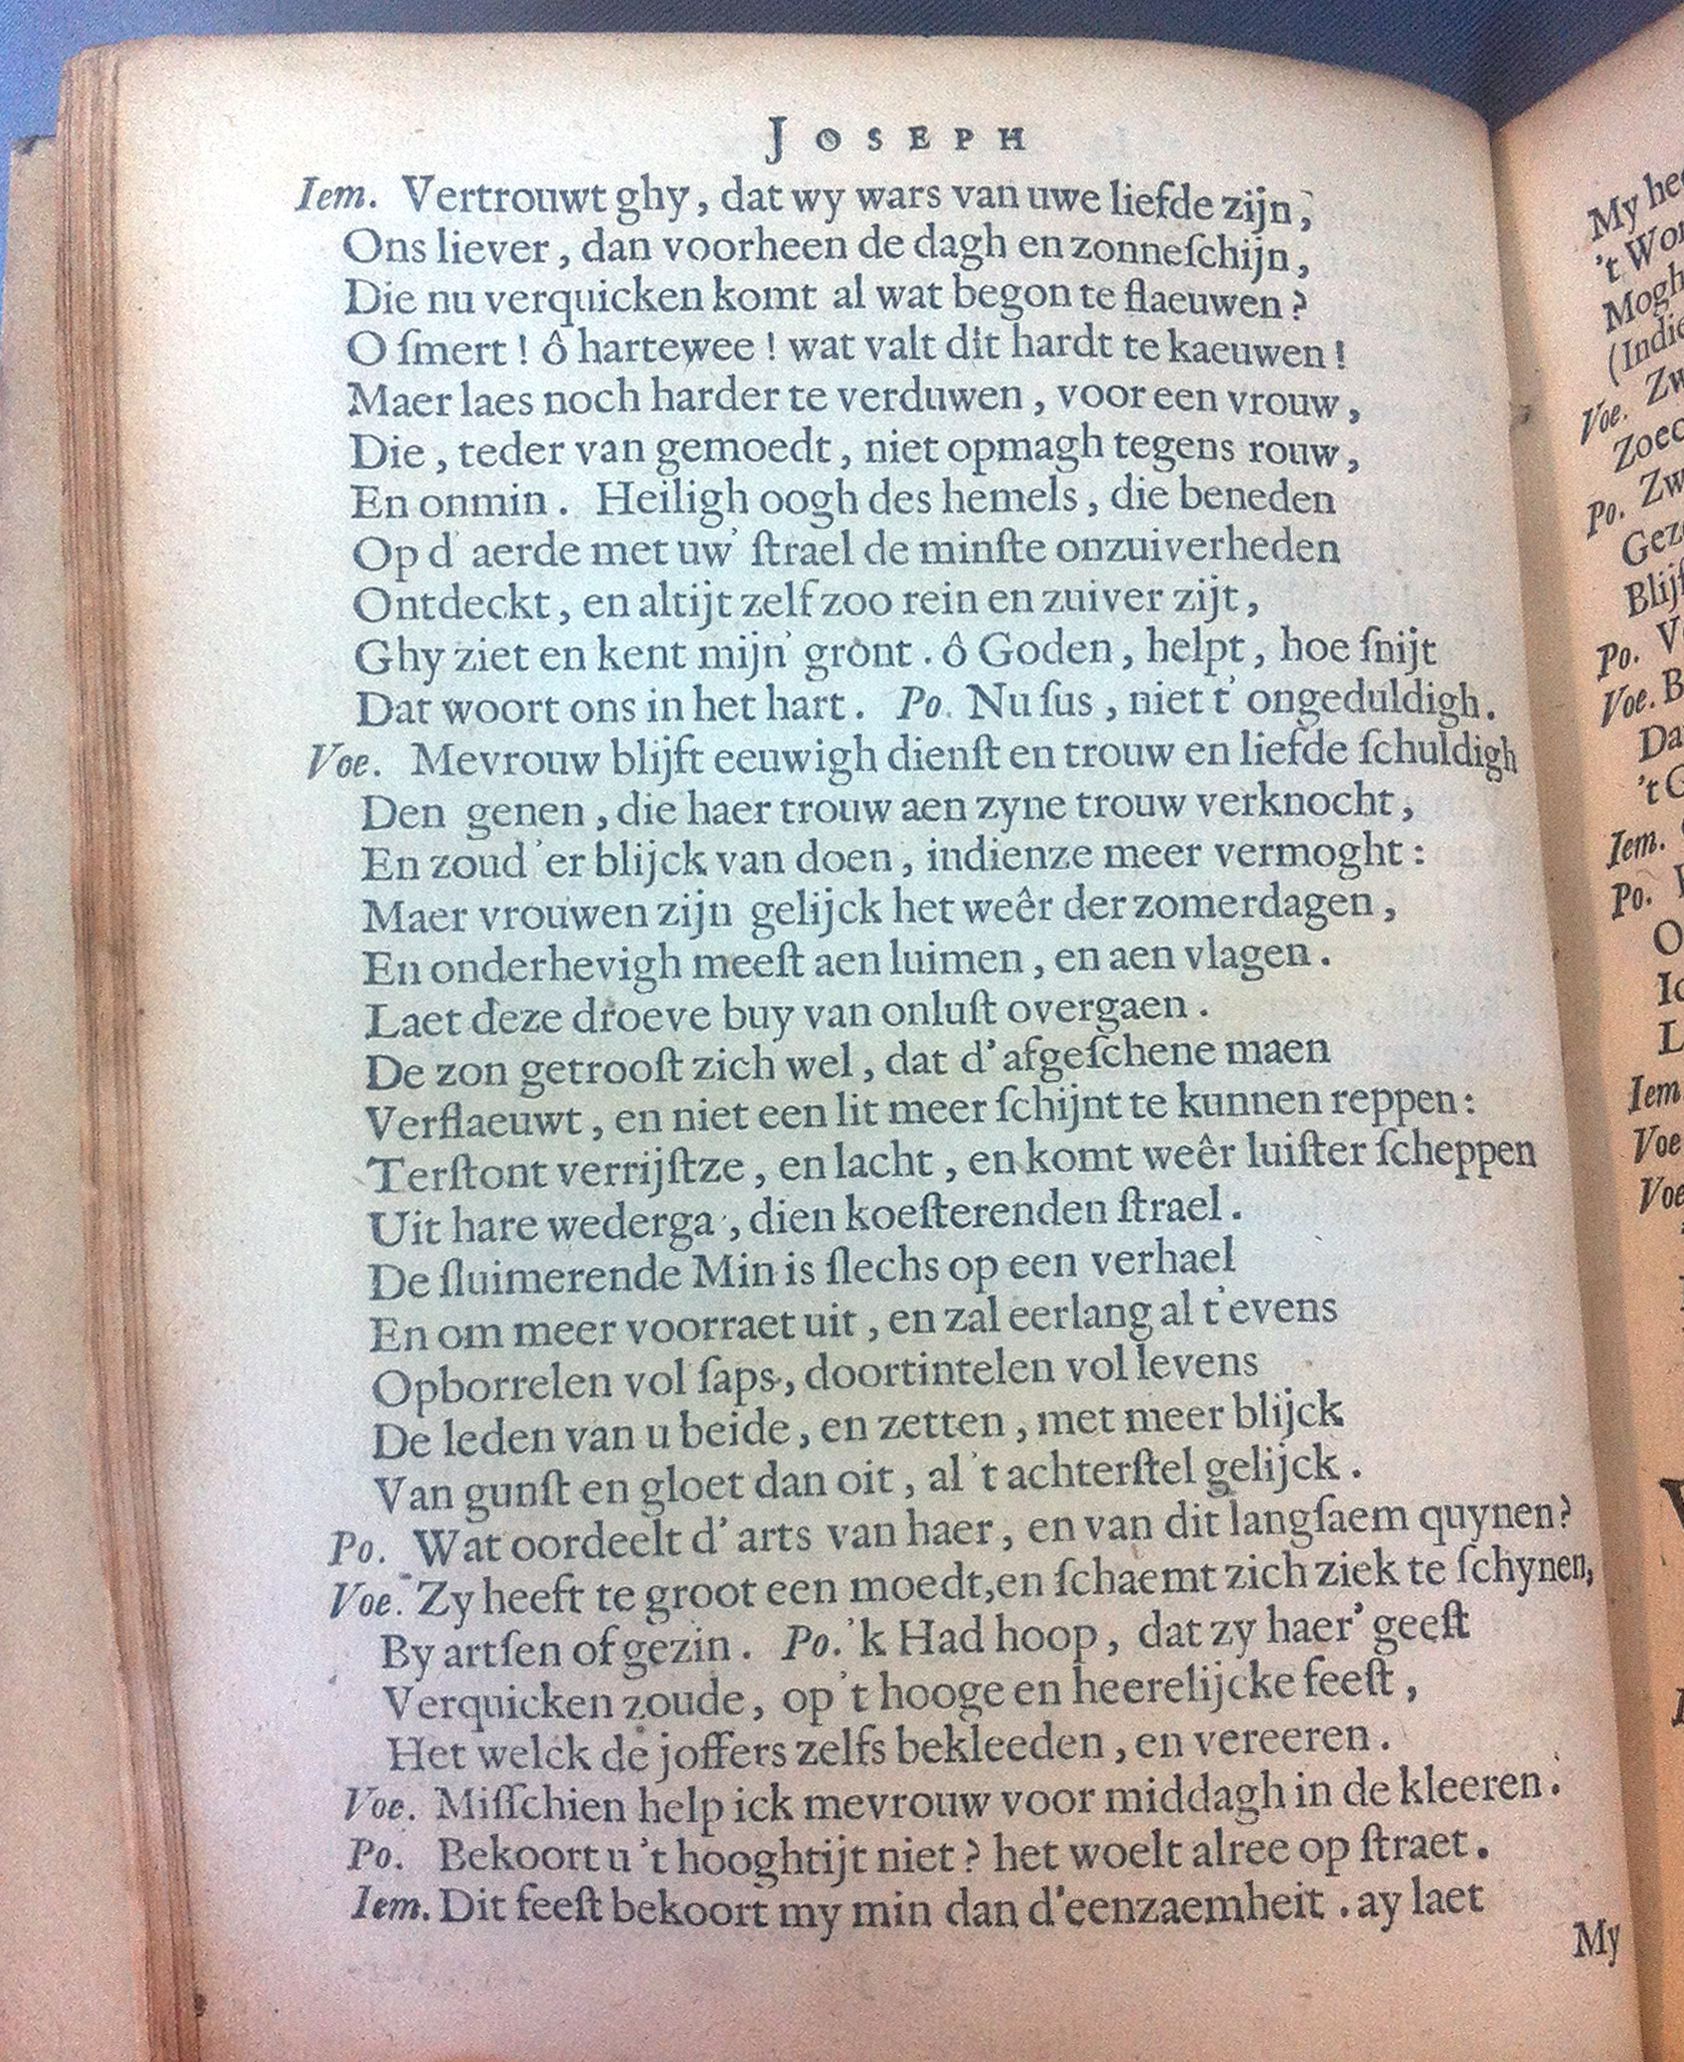 JOSEPH
Iem. Vertrouwt ghy, dat wy wars van uwe liefde zijn,
Ons liever, dan voorheen de dagh en zonneſchijn,
Die nu verquicken komt al wat begon te flaeuwen?
O ſmert! ô hartewee! wat valt dit hardt te kaeuwen!
Maer laes noch harder te verduwen, voor een vrouw,
Die, teder van gemoedt, niet opmagh tegens rouw,
En onmin. Heiligh oogh des hemels, die beneden
Op d' aerde met uw' ſtrael de minſte onzuiverheden
Ontdeckt, en altijt zelf zoo rein en zuiver zijt,
Ghy ziet en kent mijn' gront. ô Goden, helpt, hoe ſnijt
Dat woort ons in het hart. Po. Nu ſus, niet t' ongeduldigh.
Voe. Mevrouw blijft eeuwigh dienſt en trouw en liefde ſchuldigh
Den genen, die haer trouw aen zyne trouw verknocht,
En zoud 'er blijck van doen, indienze meer vermoght:
Maer vrouwen zijn gelijck het weêr der zomerdagen,
En onderhevigh meeſt aen luimen, en aen vlagen.
Laet deze droeve buy van onluſt overgaen.
De zon getrooſt zich wel, dat d' afgeſchene maen
Verflaeuwt, en niet een lit meer ſchijnt te kunnen reppen:
Terſtont verrijſtze, en lacht, en komt weêr luiſter ſcheppen
Uit hare wederga', dien koeſterenden ſtrael.
De ſluimerende Min is ſlechs op een verhael
En om meer voorraet uit, en zal eerlang al t'evens
Opborrelen vol ſaps, doortintelen vol levens
De leden van u beide, en zetten, met meer blijck
Van gunſt en gloet dan oit, al 't achterſtel gelijck.
Po. Wat oordeelt d' arts van haer, en van dit langſaem quynen?
Voe. Zy heeft te groot een moedt, en ſchaemt zich ziek te ſchynen,
By artſen of gezin. Po. 'k Had hoop, dat zy haer' geeſt
Verquicken zoude, op 't hooge en heerelijcke feeſt,
Het welck de joffers zelfs bekleeden, en vereeren.
Voe. Miſſchien help ick mevrouw voor middagh in de kleeren.
Po. Bekoort u 't hooghtijt niet? het woelt alree op ſtraet.
Iem. Dit feeſt bekoort my min dan d'eenzaemheit. ay laet
My
My
't
Mogh
Voe.
Po.
Po.
Voe. B
Da
't G
Iem.
Po.
O
L
Iem
Voe
Voe